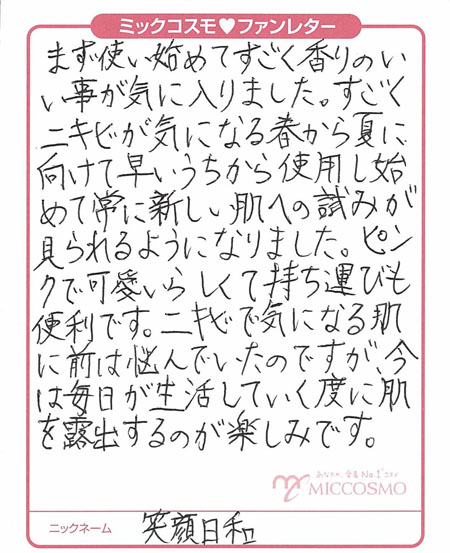 ミックコスモ♥ファンレター
まず使い始めてすごく香りのい
い事が気に入りました。すごく
ニキビが気になる春から夏に
向けて早いうちから使用し始
めて常に新しい肌への試みが
見られるようになりました。ピン
クで可愛いらしくて持ち運びも
便利です。ニキビで気になる肌
に前は悩んでいたのですが、今
は毎日が生活していく度に肌
を露出するのが楽しみです。
あなたの、全員No.1コスメ
MICCOSMO
ニックネーム 笑顔日和